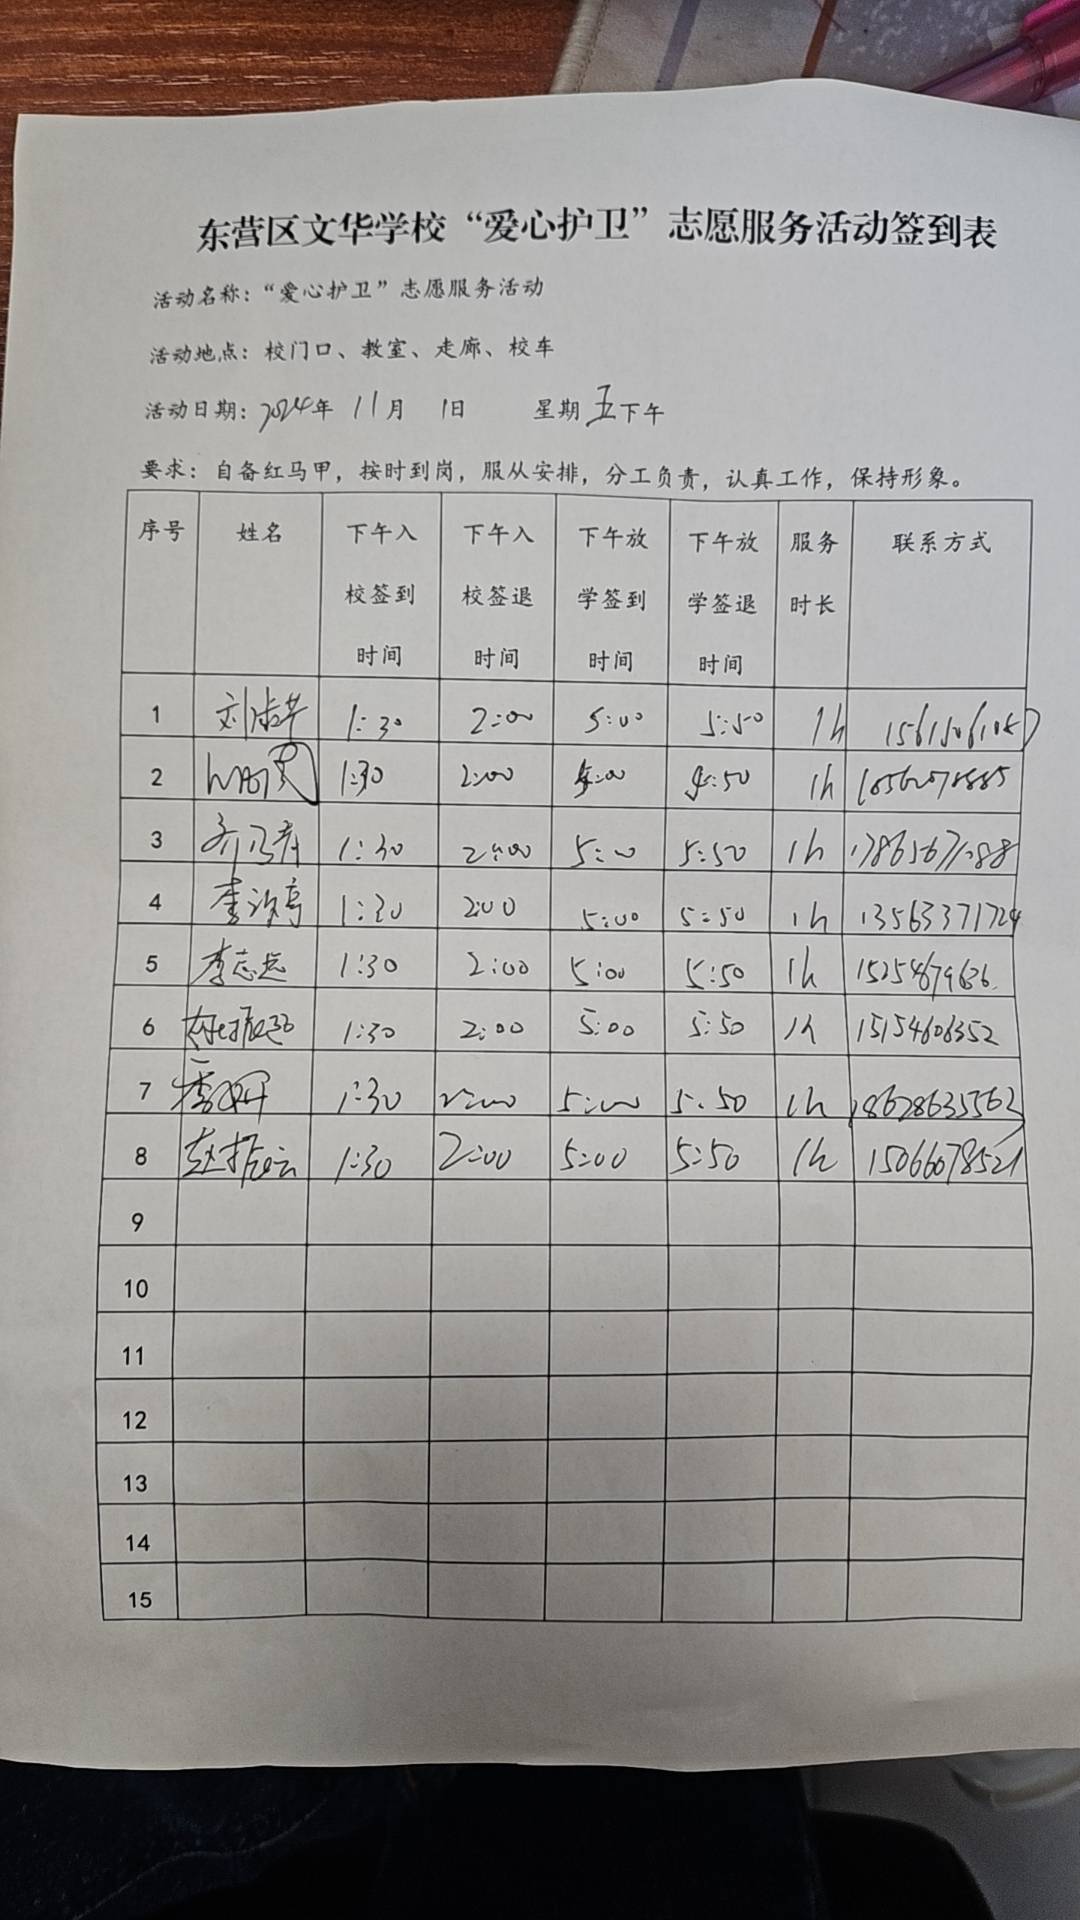 东营区文华学校“爱心护卫”志愿服务活动签到表
活动名称：“爱心护卫”志愿服务活动
活动地点：校门口、教室、走廊、校车
活动日期：2024年 11月 1日 星期五下午
要求：自备红马甲，按时到岗，服从安排，分工负责，认真工作，保持形象。
序号 姓名 下午入校签到时间 下午入校签退时间 下午放学签到时间 下午放学签退时间 服务时长 联系方式
1 1:30 2:00 5:00 5:50 1h
2 1:30 2:00 5:00 5:50 1h
3 1:30 2:00 5:00 5:50 1h
4 1:30 2:00 5:00 5:50 1h 13563371724
5 李志远 1:30 2:00 5:00 5:50 1h 15254679636
6 1:30 2:00 5:00 5:50 1h 15154606352
7 1:30 2:00 5:00 5:50 1h 18628635563
8 赵振云 1:30 2:00 5:00 5:50 1h 15066078521
9
10
11
12
13
14
15